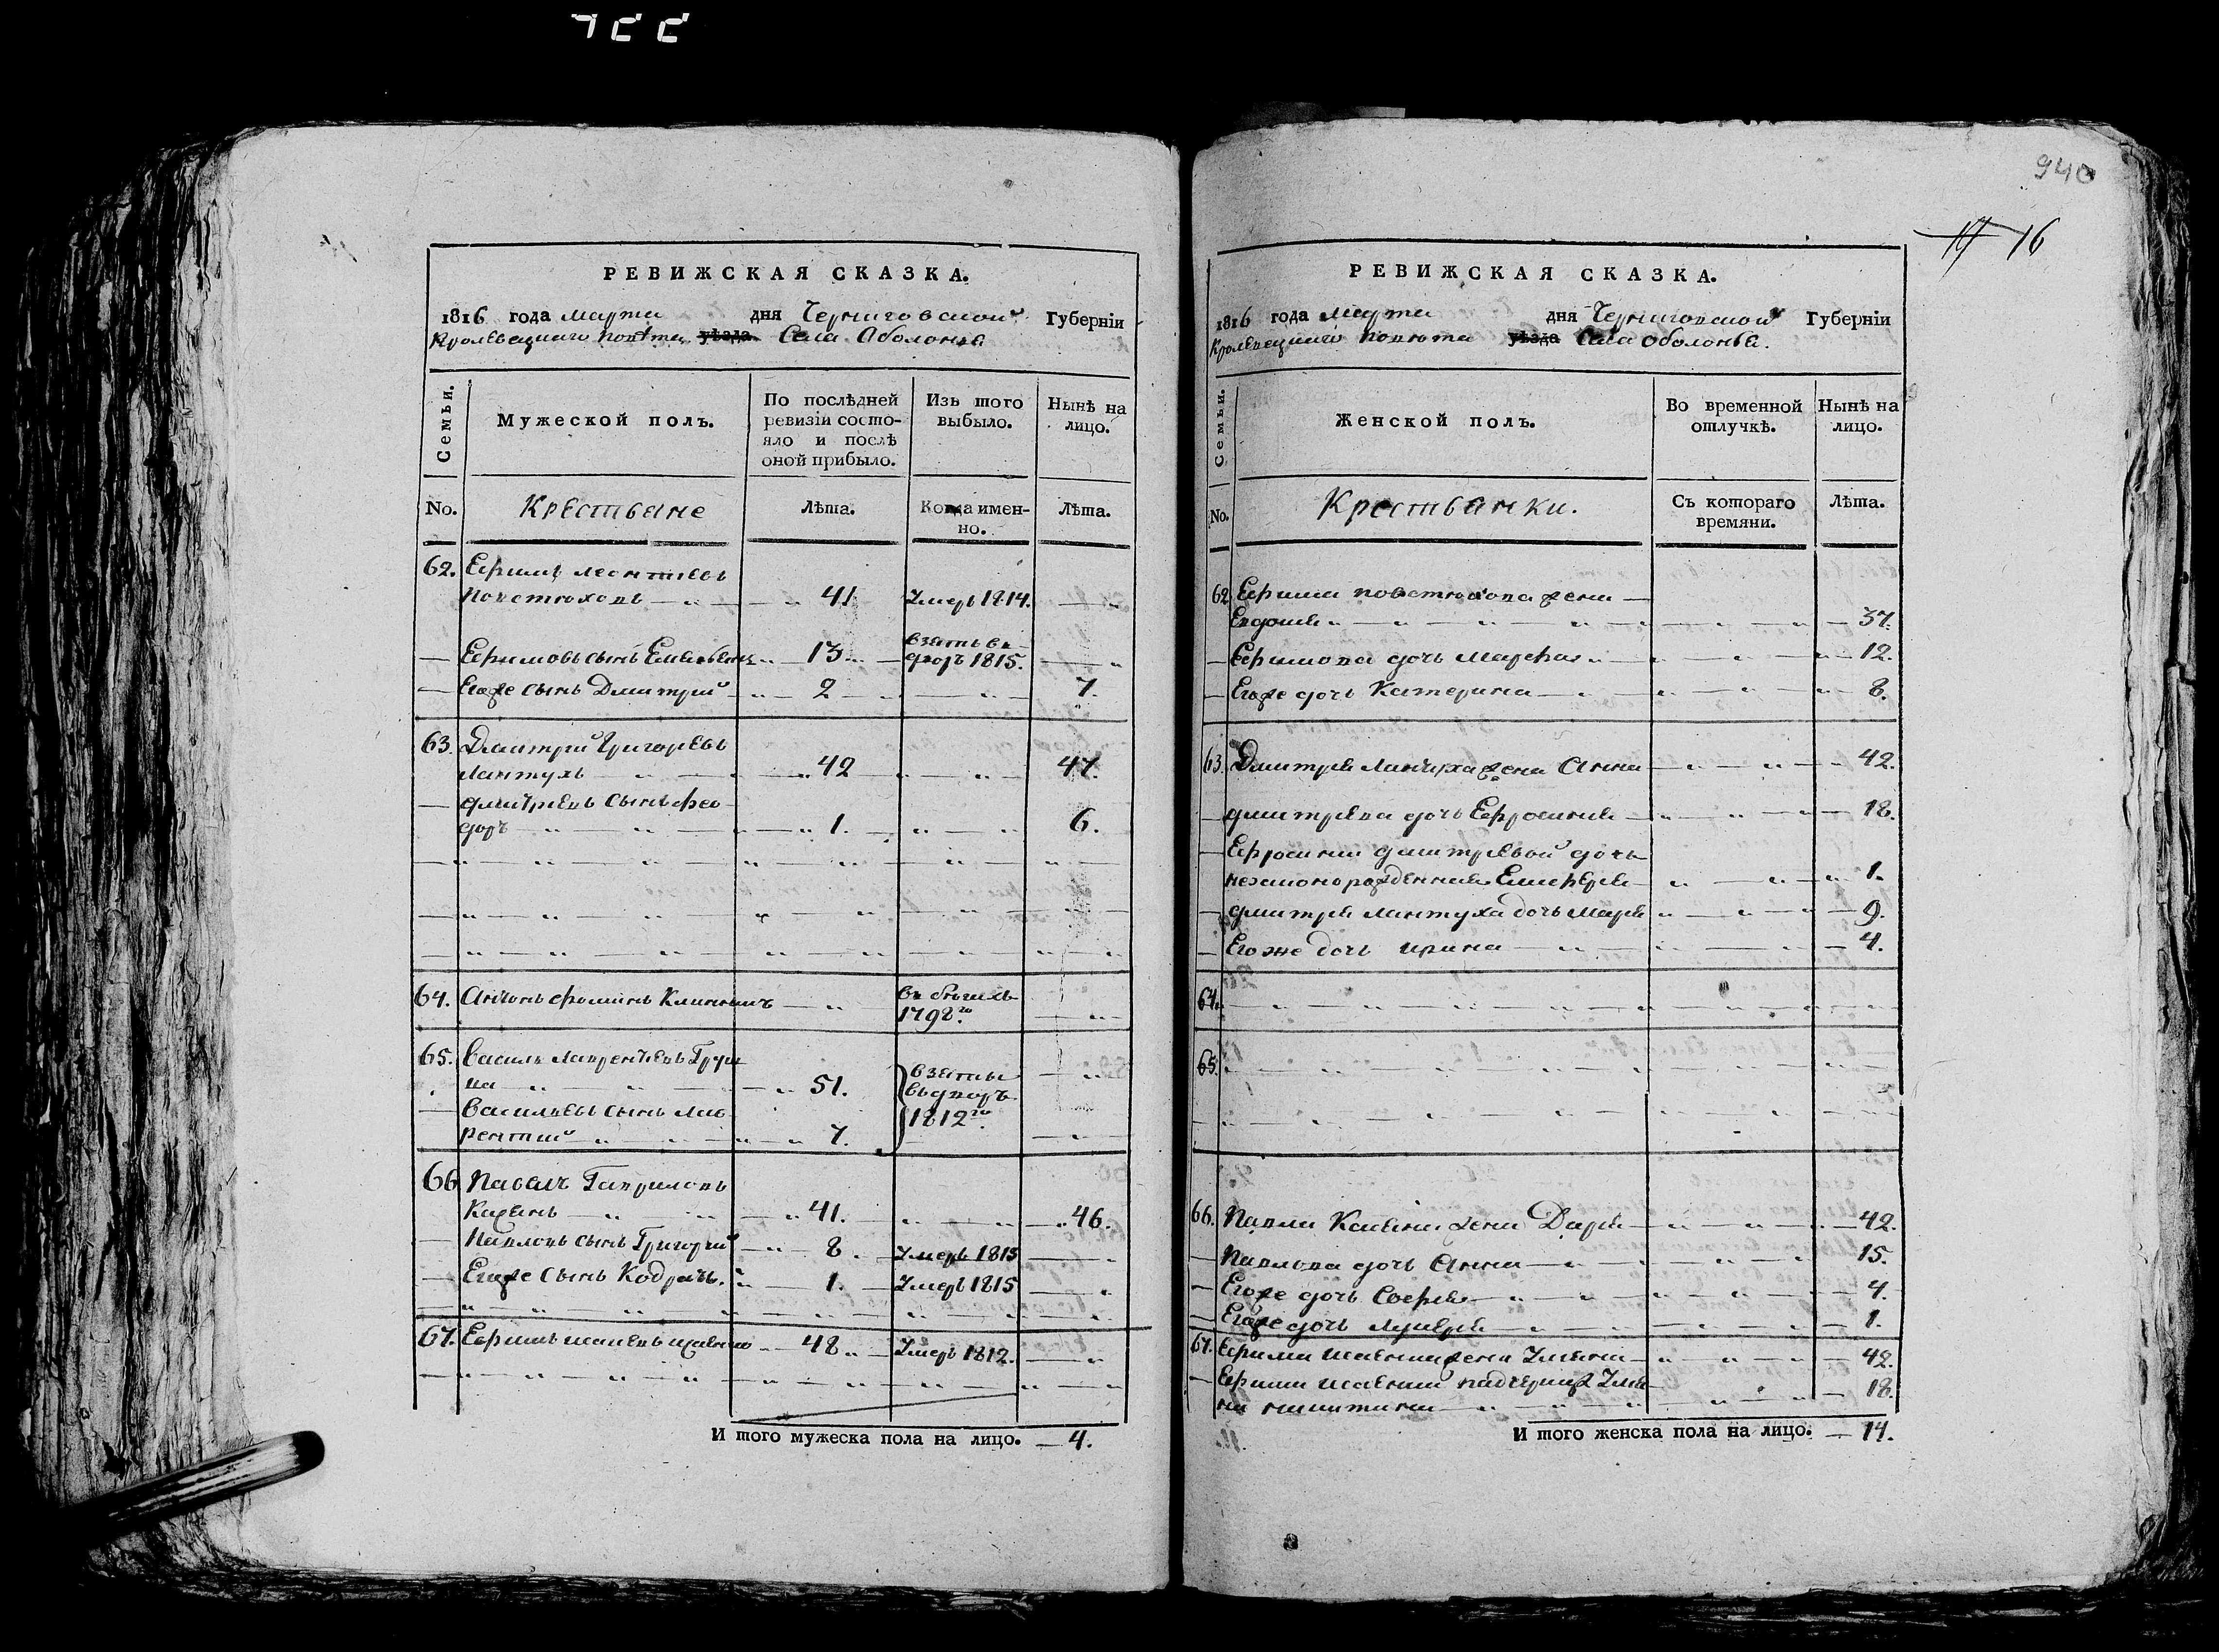 940
16
РЕВИЖСКАЯ СКАЗКА.
1816 года марта дня Черниговской Губерніи
Кролевецкаго повѣта уѣзда Села Оболонья
Семьи.
Мужеской полъ.
По послѣдней ревизіи состояло и послѣ оной прибыло.
Изъ того выбыло.
Нынѣ на лицо.
No.
Крестьяне
Лѣта.
Когда именно.
Лѣта.
62. Ефимъ Леонтіевъ
41 Умеръ 1814.
Ефимовъ сынъ 13 взятъ въ
дворъ 1815.
Егоже сынъ Дмитрій 2 7.
63. Дмитрій Григорьевъ
Лантухъ 42 47.
Дмитріевъ сынъ Фео
доръ 1. 6.
64. Антонъ Фоминъ въ бегахъ
1798го
65. Василь Лавреньевъ
51. взяты
въ дворъ
Васильевъ сынъ Лав 1812го
рентий 7.
66 Павелъ Гавриловъ
41. 46.
Павловъ сынъ Григорий 8. Умеръ 1815
Егоже сынъ Кодратъ. 1. Умеръ 1815
67. Ефимъ 48 Умеръ 1812.
И того мужеска пола на лицо. 4.
РЕВИЖСКАЯ СКАЗКА.
1816 года марта дня Черниговской Губерніи
Кролевецкаго повѣта уѣзда Села Оболонья.
Семьи.
Женской полъ.
Во временной отлучкѣ.
Нынѣ на лицо.
No.
Крестьянки.
Съ котораго времяни.
Лѣта.
62 Ефима жена
37.
Ефимова дочь Марфа 12.
Егоже дочь Катерина 8.
63. Дмитрія Лантуха жена Анна 42.
Дмитріева дочь Ефросинія 18.
Ефросиніи Дмитріевой дочь
1.
Дмитрія Лантуха дочь Марія 9.
Егоже дочь Ирина 4.
64.
65.
66. Павла жена Дарія 42.
Павлова дочь Анна 15.
Егоже дочь Софія 4.
Егоже дочь 1.
67. Ефима жена Уліяна 42.
Ефима падчерица
18.
И того женска пола на лицо. 14.